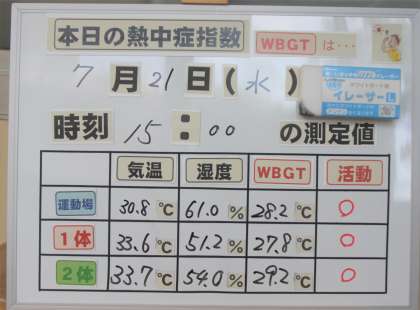 本日の熱中症指数 WBGT は…
7月21日(水)
ホワイトボード用
イレーサーL
時刻 15:00 の測定値
気温 湿度 WBGT 活動
運動場 30.8℃ 61.0% 28.2℃ ○
1体 33.6℃ 51.2% 27.8℃ ○
2体 33.7℃ 54.0% 29.2℃ ○